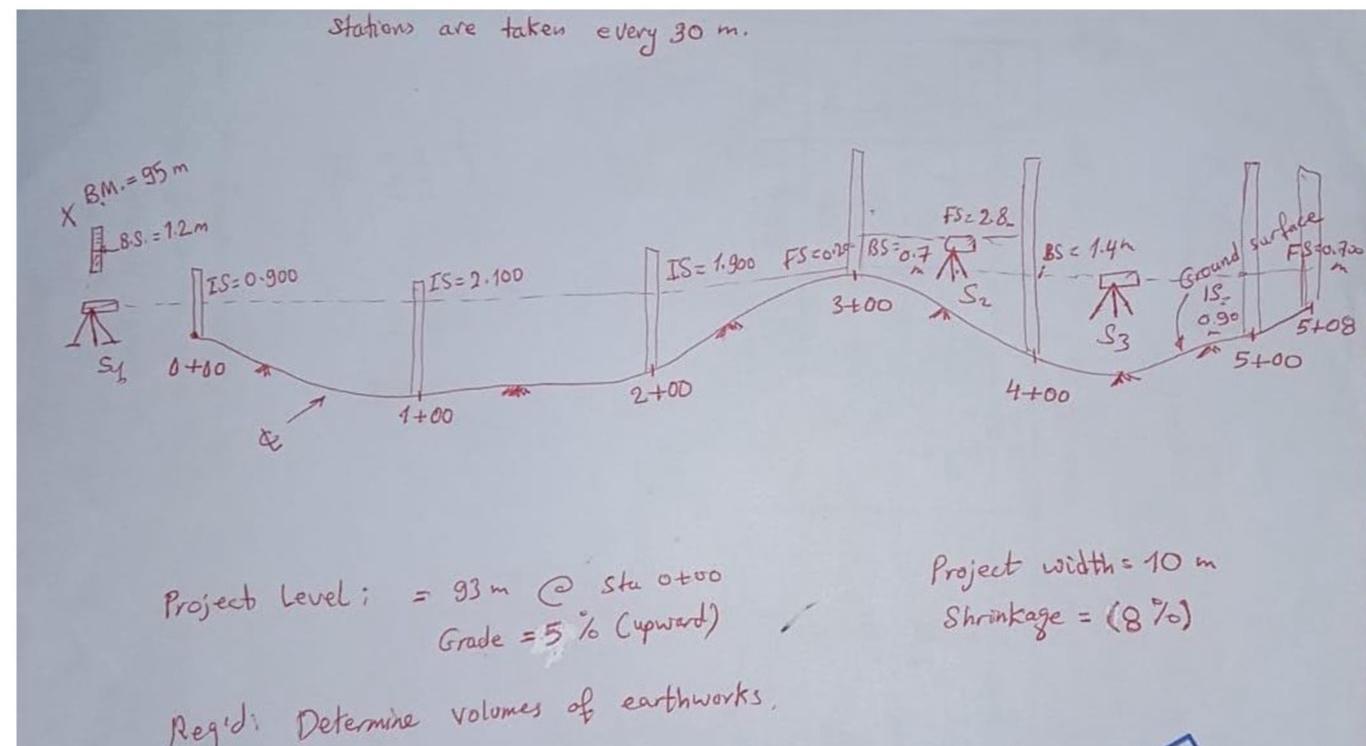 Stations are taken every 30 m.
X B.M. = 95 m
B.S. = 1.2 m
IS = 0.900
IS = 2.100
IS = 1.900
BS = 0.7 m
FS = 2.8
BS = 1.4
Ground surface
IS = 0.90
FS = 0.700 m
S1
S2
S3
0+00
1+00
2+00
3+00
4+00
5+00
5+08
Project Level: = 93 m @ Sta 0+00
Grade = 5 % (upward)
Project width = 10 m
Shrinkage = (8 %)
Req'd: Determine volumes of earthworks.